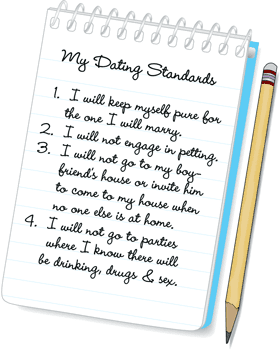 My Dating Standards
1. I will keep myself pure for
the one I will marry.
2. I will not engage in petting.
3. I will not go to my boy-
friend's house or invite him
to come to my house when
no one else is at home.
4. I will not go to parties
where I know there will
be drinking, drugs & sex.